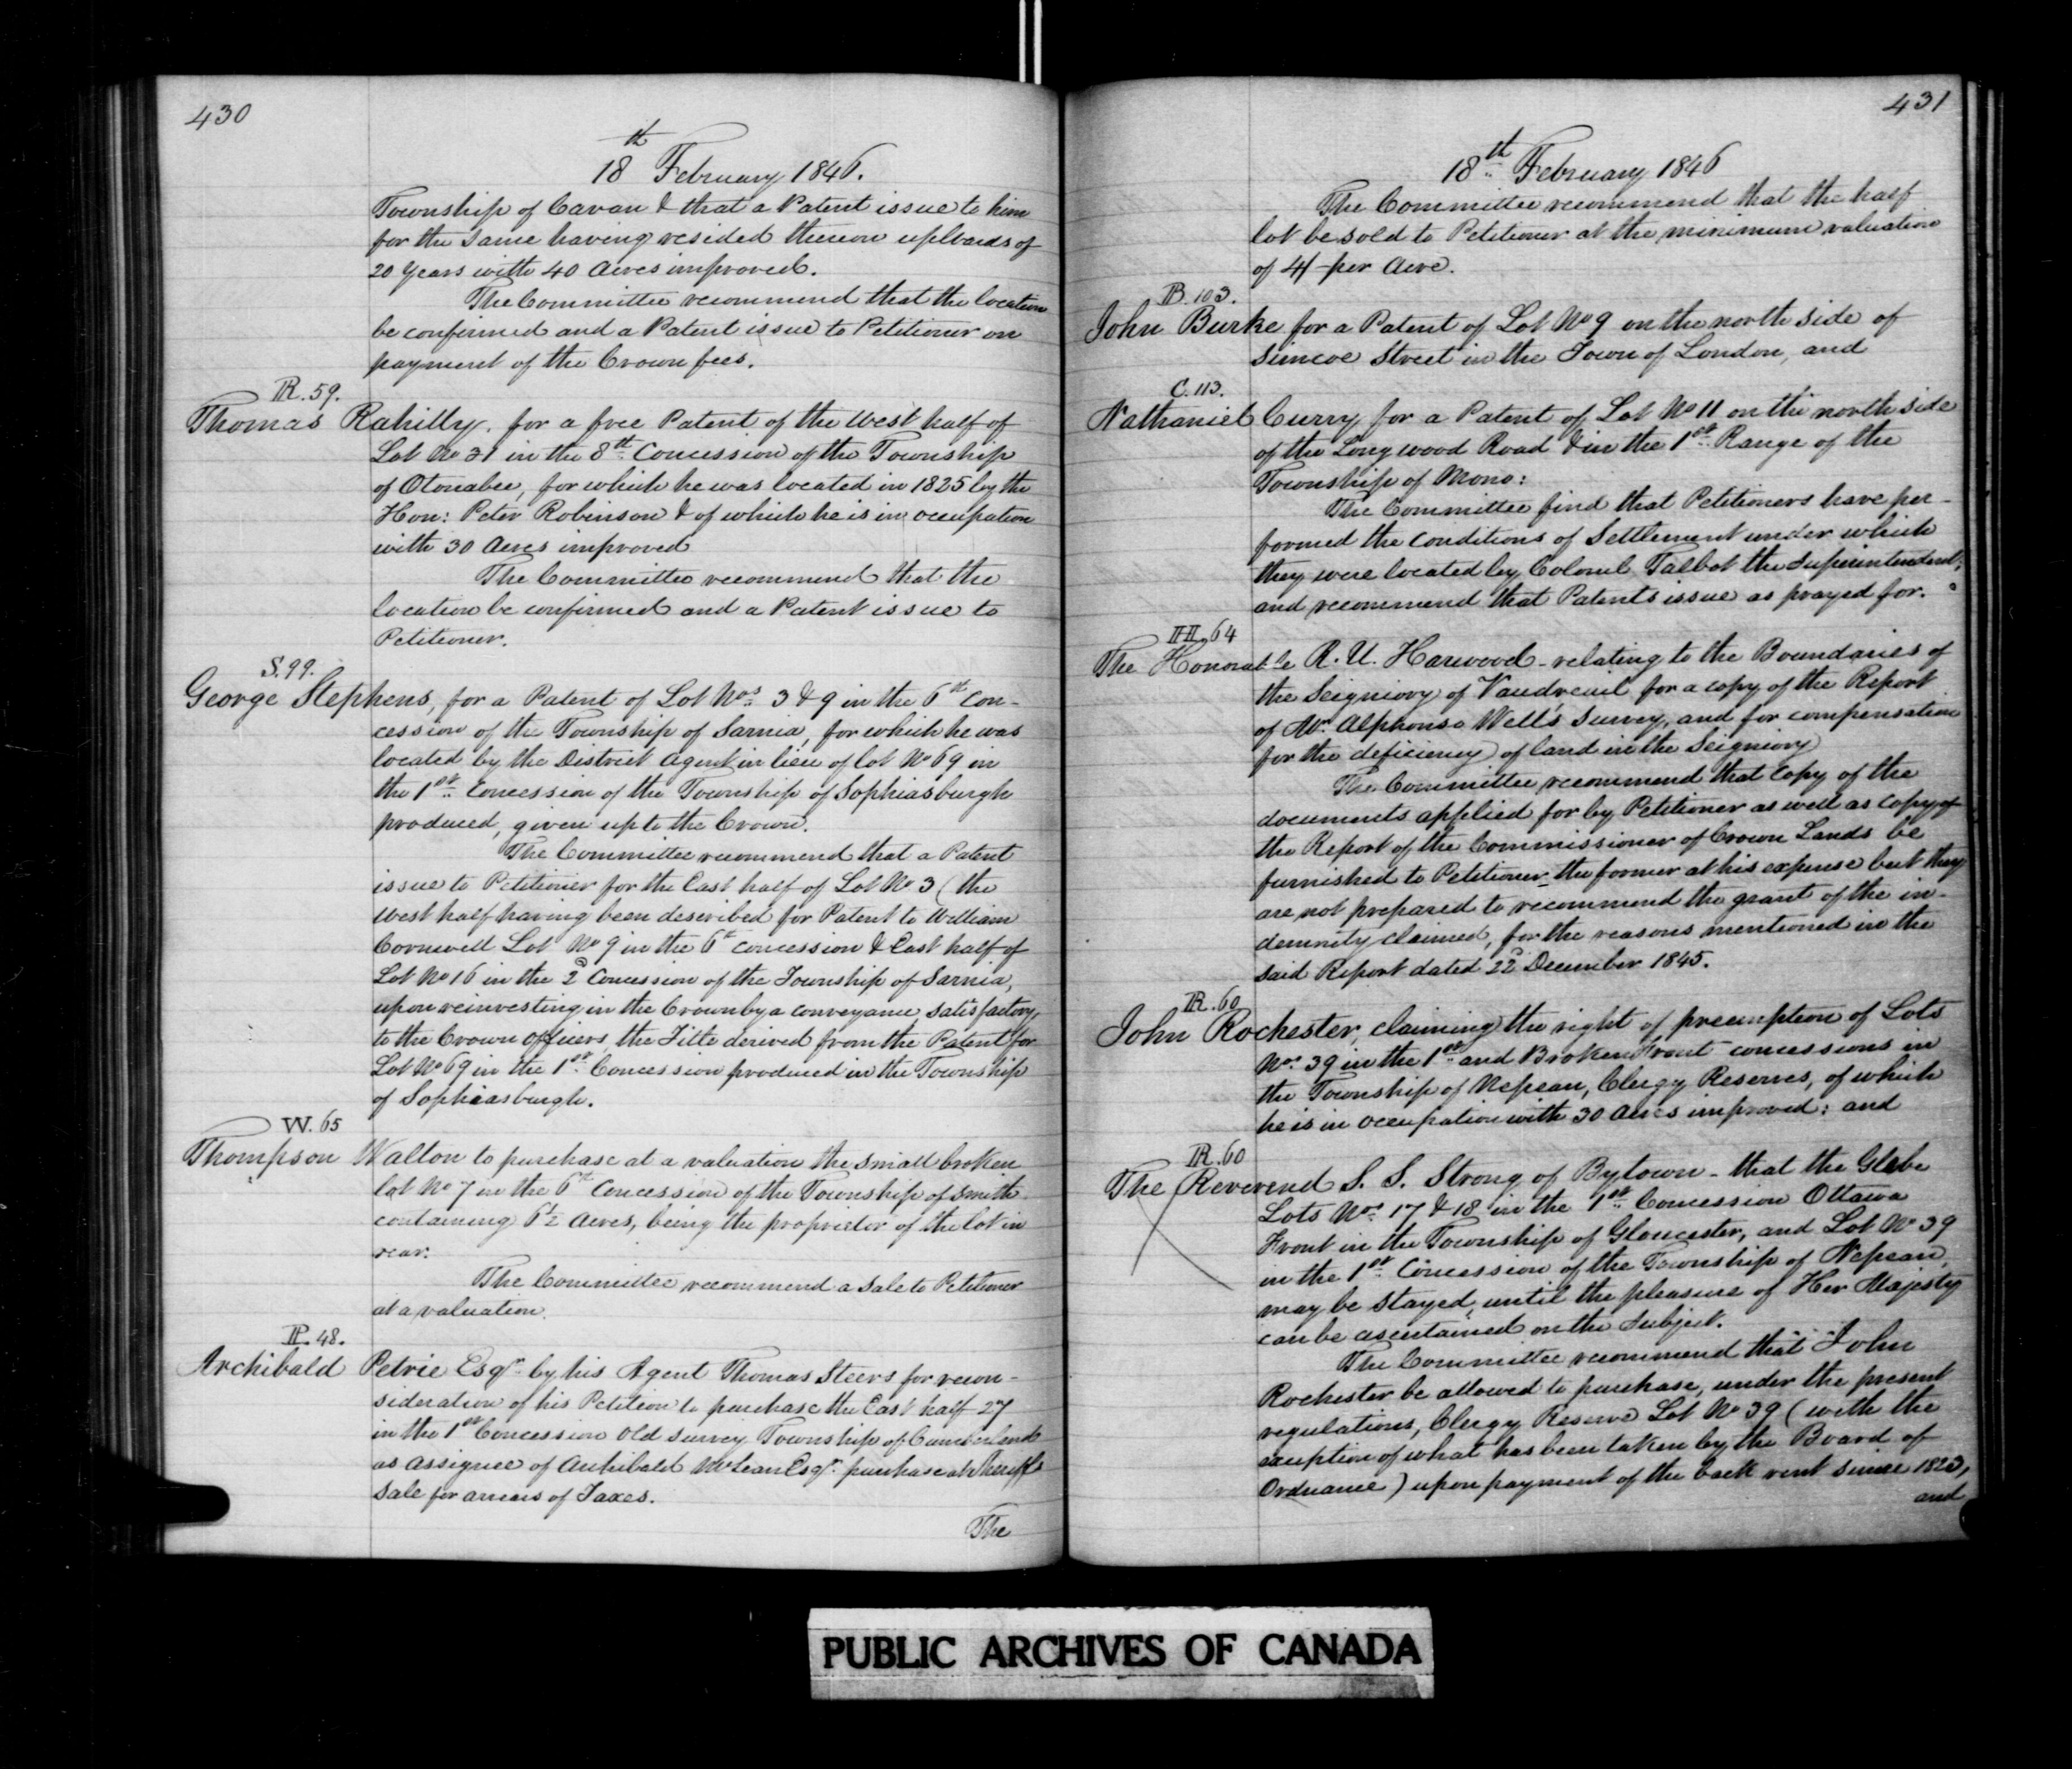 430
18th February 1846.
Township of Cavan & that a Patent issue to him
for the same having resided thereon upwards of
20 Years with 40 Acres improved.
The Committee recommend that the location
be confirmed and a Patent issue to Petitioner on
payment of the Crown fees.
R. 59.
Thomas Rahilly, for a free Patent of the West half of
Lot No 21 in the 8th Concession of the Township
of Otonabee, for which he was located in 1825 by the
Hon: Peter Robinson & of which he is in occupation
with 30 Acres improved
The Committee recommend that the
location be confirmed and a Patent issue to
Petitioner.
S. 99.
George Stephens, for a Patent of Lot Nos 3 & 9 in the 6th Con-
cession of the Township of Sarnia, for which he was
located by the District Agent in lieu of lot No 69 in
the 1st Concession of the Township of Sophiasburgh
produced, given up to the Crown.
The Committee recommend that a Patent
issue to Petitioner for the East half of Lot No 3 (the
West half having been described for Patent to William
Cornwell Lot No 9 in the 6th concession & East half of
Lot No 16 in the 2d Concession of the Township of Sarnia,
upon reinvesting in the Crown by a conveyance satisfactory
to the Crown Officers, the Title derived from the Patent for
Lot No 69 in the 1st Concession produced in the Township
of Sophiasburgh.
W. 65
Thompson Walton to purchase at a valuation the small broken
lot No 7 in the 6th Concession of the Township of Smith
containing 6½ Acres, being the proprietor of the lot in
rear.
The Committee recommend a Sale to Petitioner
at a valuation.
P. 48.
Archibald Petrie Esqr by his Agent Thomas Steers for recon-
sideration of his Petition to purchase the East half 27
in the 1st Concession Old Survey Township of Cumberland
as Assignee of Archibald McLean Esqr purchase at Sheriffs
Sale for arrears of Taxes.
The
431
18th February 1846
The Committee recommend that the half
lot be sold to Petitioner at the minimum valuation
of 4/ per Acre.
B. 103.
John Burke for a Patent of Lot No 9 on the north side of
Simcoe Street in the Town of London, and
C. 113.
Nathaniel Curry for a Patent of Lot No 11 on the north side
of the Longwood Road & in the 1st Range of the
Township of Mono:
The Committee find that Petitioners have per-
formed the conditions of Settlement under which
they were located by Colonel Talbot the Superintendent,
and recommend that Patents issue as prayed for.
H. 64
The Honorable R. U. Harwood - relating to the Boundaries of
the Seigniory of Vaudreuil for a copy of the Report
of Mr. Alphonso Well's Survey, and for compensation
for the deficiency of land in the Seigniory
The Committee recommend that copy of the
documents applied for by Petitioner as well as copy of
the Report of the Commissioner of Crown Lands be
furnished to Petitioner, the former at his expense but they
are not prepared to recommend the grant of the in-
demnity claimed, for the reasons mentioned in the
said Report dated 22d December 1845.
R. 60
John Rochester, claiming the right of preemption of Lots
Nos 39 in the 1st and Broken Front concessions in
the Township of Nepean, Clergy Reserves, of which
he is in occupation with 30 Acres improved: and
R. 60
The Reverend S. S. Strong of Bytown - that the Glebe
Lots Nos 17 & 18 in the 1st Concession Ottawa
Front in the Township of Gloucester, and Lot No 39
in the 1st Concession of the Township of Nepean,
may be stayed, until the pleasure of Her Majesty
can be ascertained on the Subject.
The Committee recommend that John
Rochester be allowed to purchase, under the present
regulations, Clergy Reserve Lot No 39 (with the
exception of what has been taken by the Board of
Ordnance) upon payment of the back rent since 1823,
and
PUBLIC ARCHIVES OF CANADA